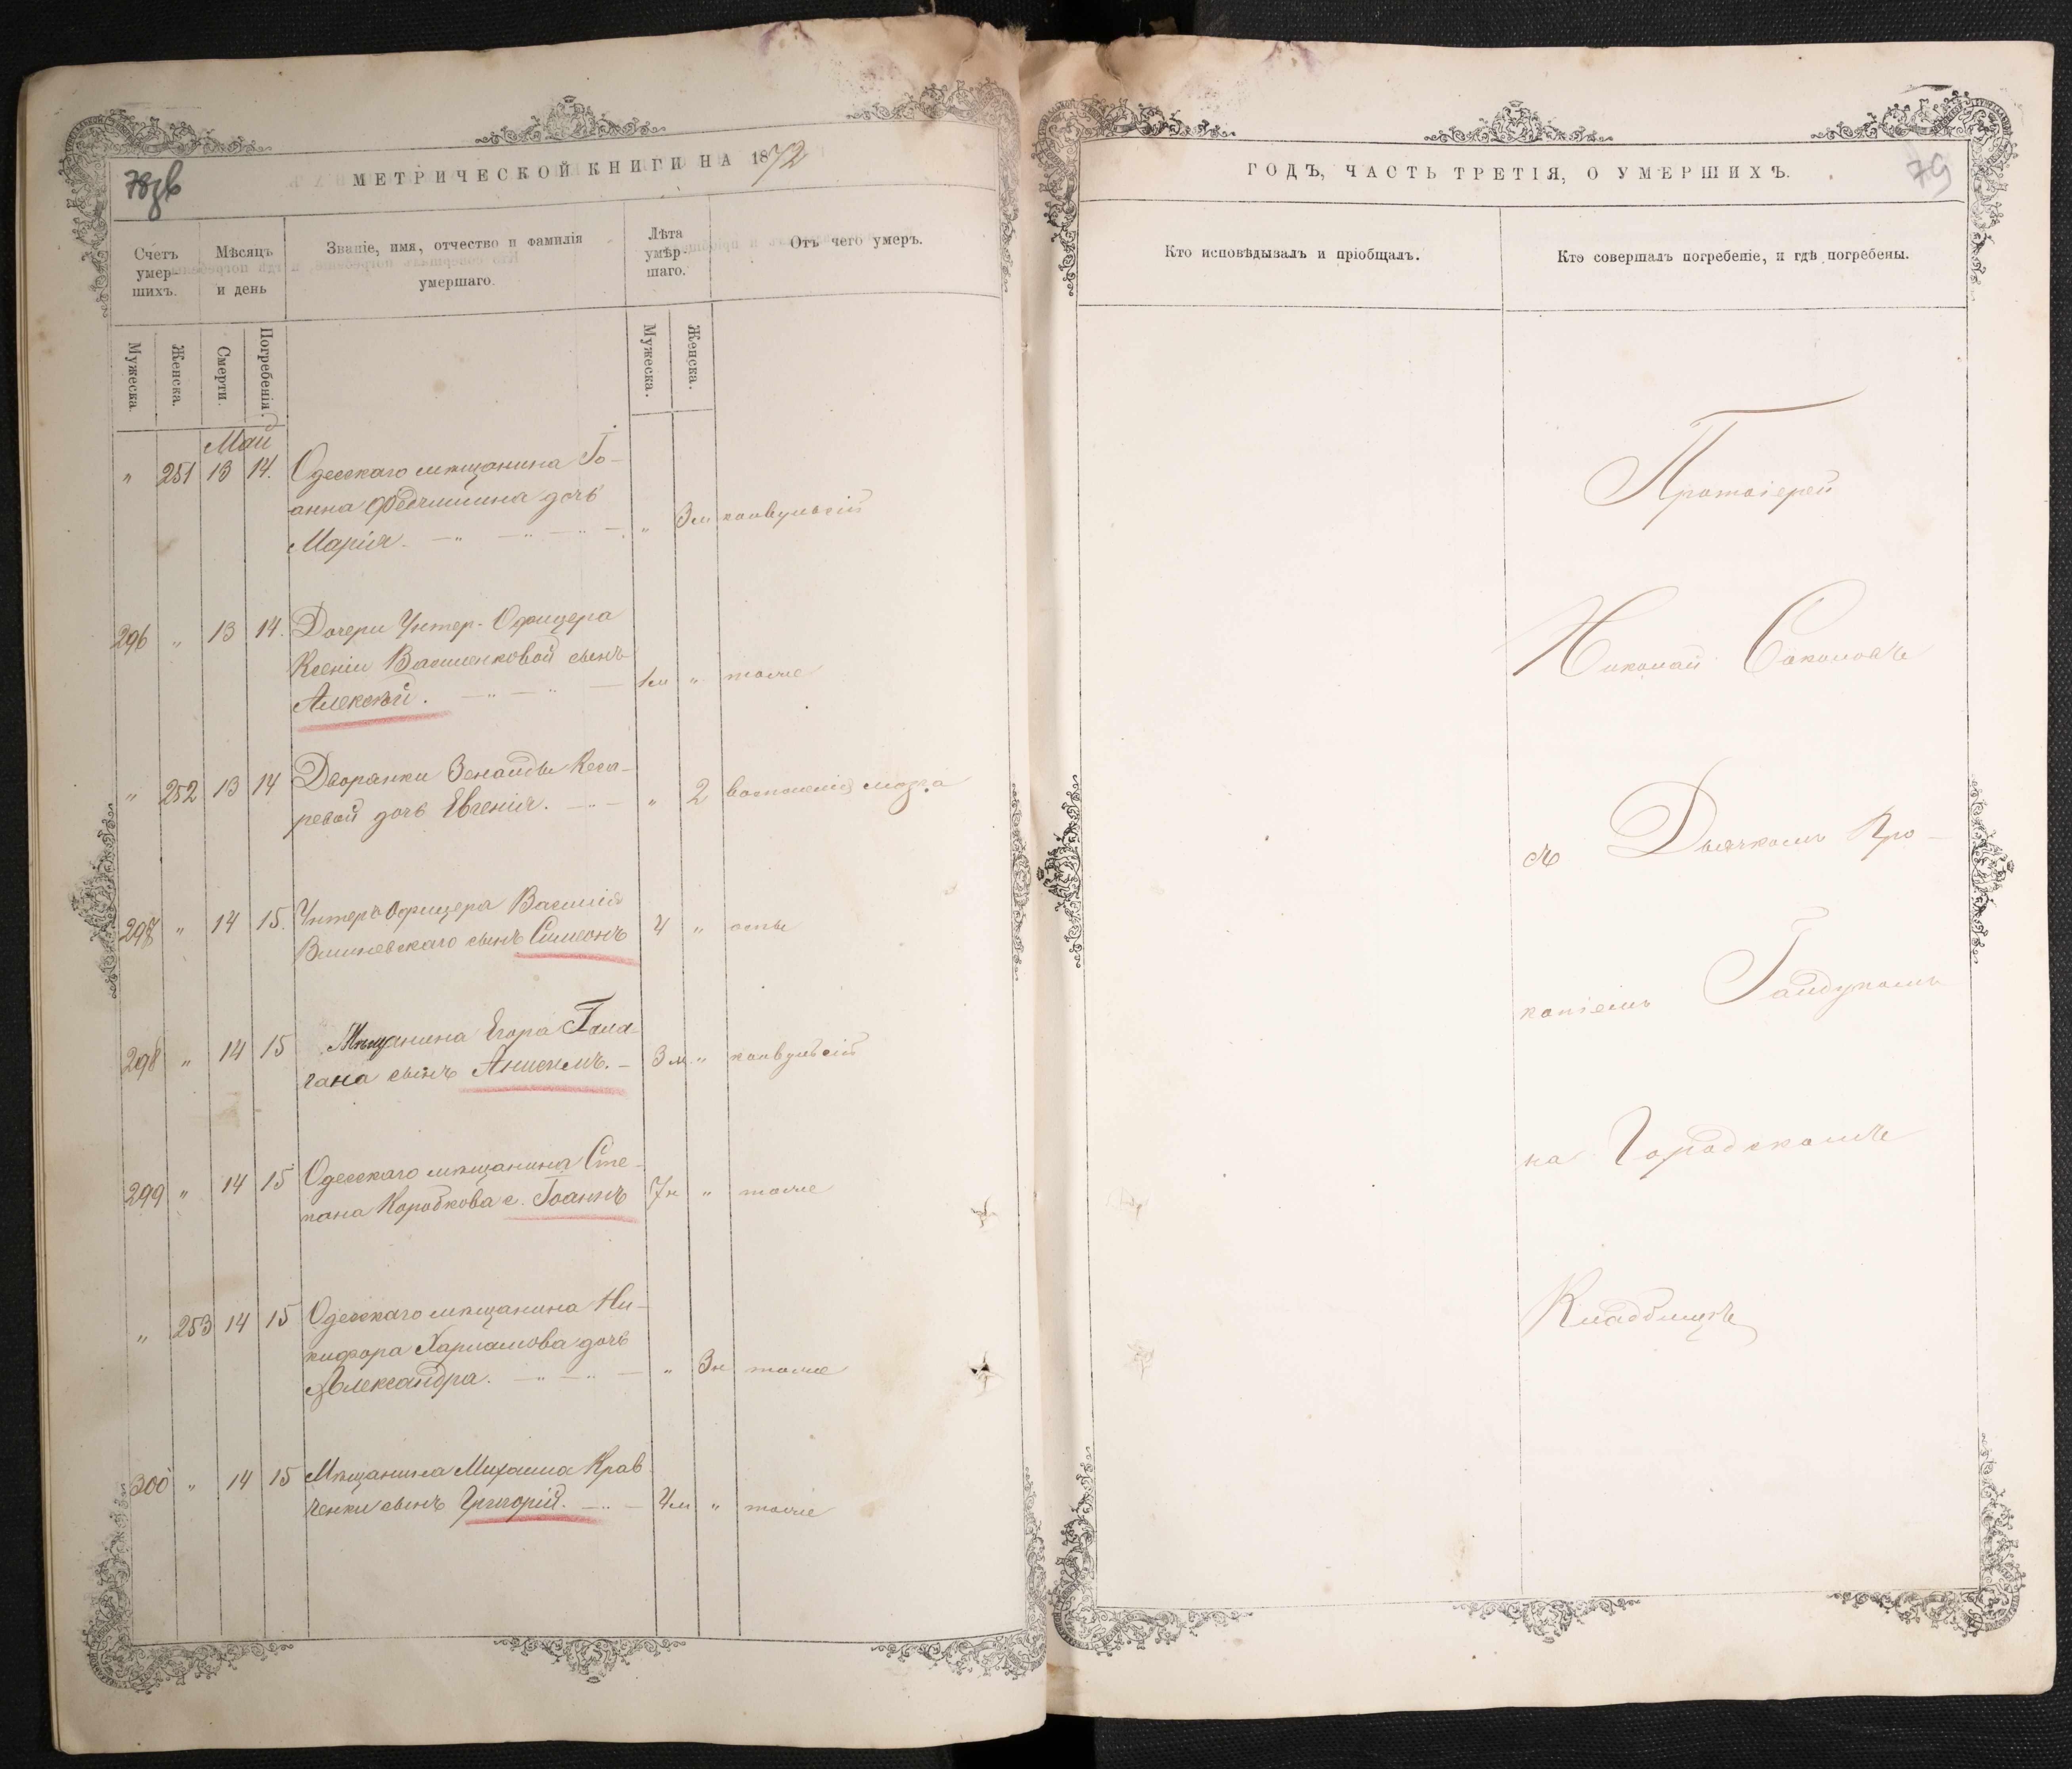 78об
МЕТРИЧЕСКОЙ КНИГИ НА 1872
Счетъ умершихъ.
Мѣсяцъ и день
Званіе, имя, отчество и фамилія умершаго.
Лѣта умѣршаго.
Отъ чего умеръ.
Мужеска.
Женска.
Смерти.
Погребенія.
Мужеска.
Женска.
Май
" 251 13 14. Одесскаго мѣщанина Іо-
анна дочь
Марія. " 3м конвульсій
296 " 13 14. Дочери Унтер-Офицера
Ксеніи Васименковой сынъ
Алексѣй. 1м " тоже
" 252 13 14 Дворянки Зенаиды Кеса-
ревой дочь Евгенія. " 2 воспаленія мозга
297 " 14 15. Унтеръ Офицера Василія
Вишневскаго сынъ Симеонъ 4 " оспы
298 " 14 15 Мѣщанина Егора Гала-
гана сынъ Анисимъ. 3м. " конвульсій
299 " 14 15 Одесскаго мѣщанина Сте-
пана Коробкова с. Іоаннъ 7н " тоже
" 253 14 15 Одесскаго мѣщанина Ни-
кифора Харламова дочь
Александра. " 3н тоже
300 " 14 15 Мѣщанина Михаила Крав
ченки сынъ Григорій. 4м " тоже
79
ГОДЪ, ЧАСТЬ ТРЕТІЯ, О УМЕРШИХЪ.
Кто исповѣдывалъ и пріобщалъ.
Кто совершалъ погребеніе, и гдѣ погребены.
Протоіерей
Николай Соколовъ
съ Дьячкомъ Про-
копіемъ Гайдукомъ
на Городскомъ
Кладбищѣ